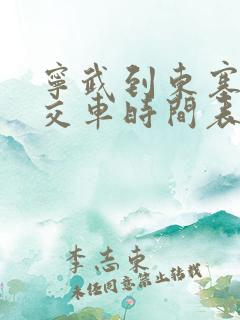 寧武到東寨
交車時間表
李志東
未經同意禁止轉載